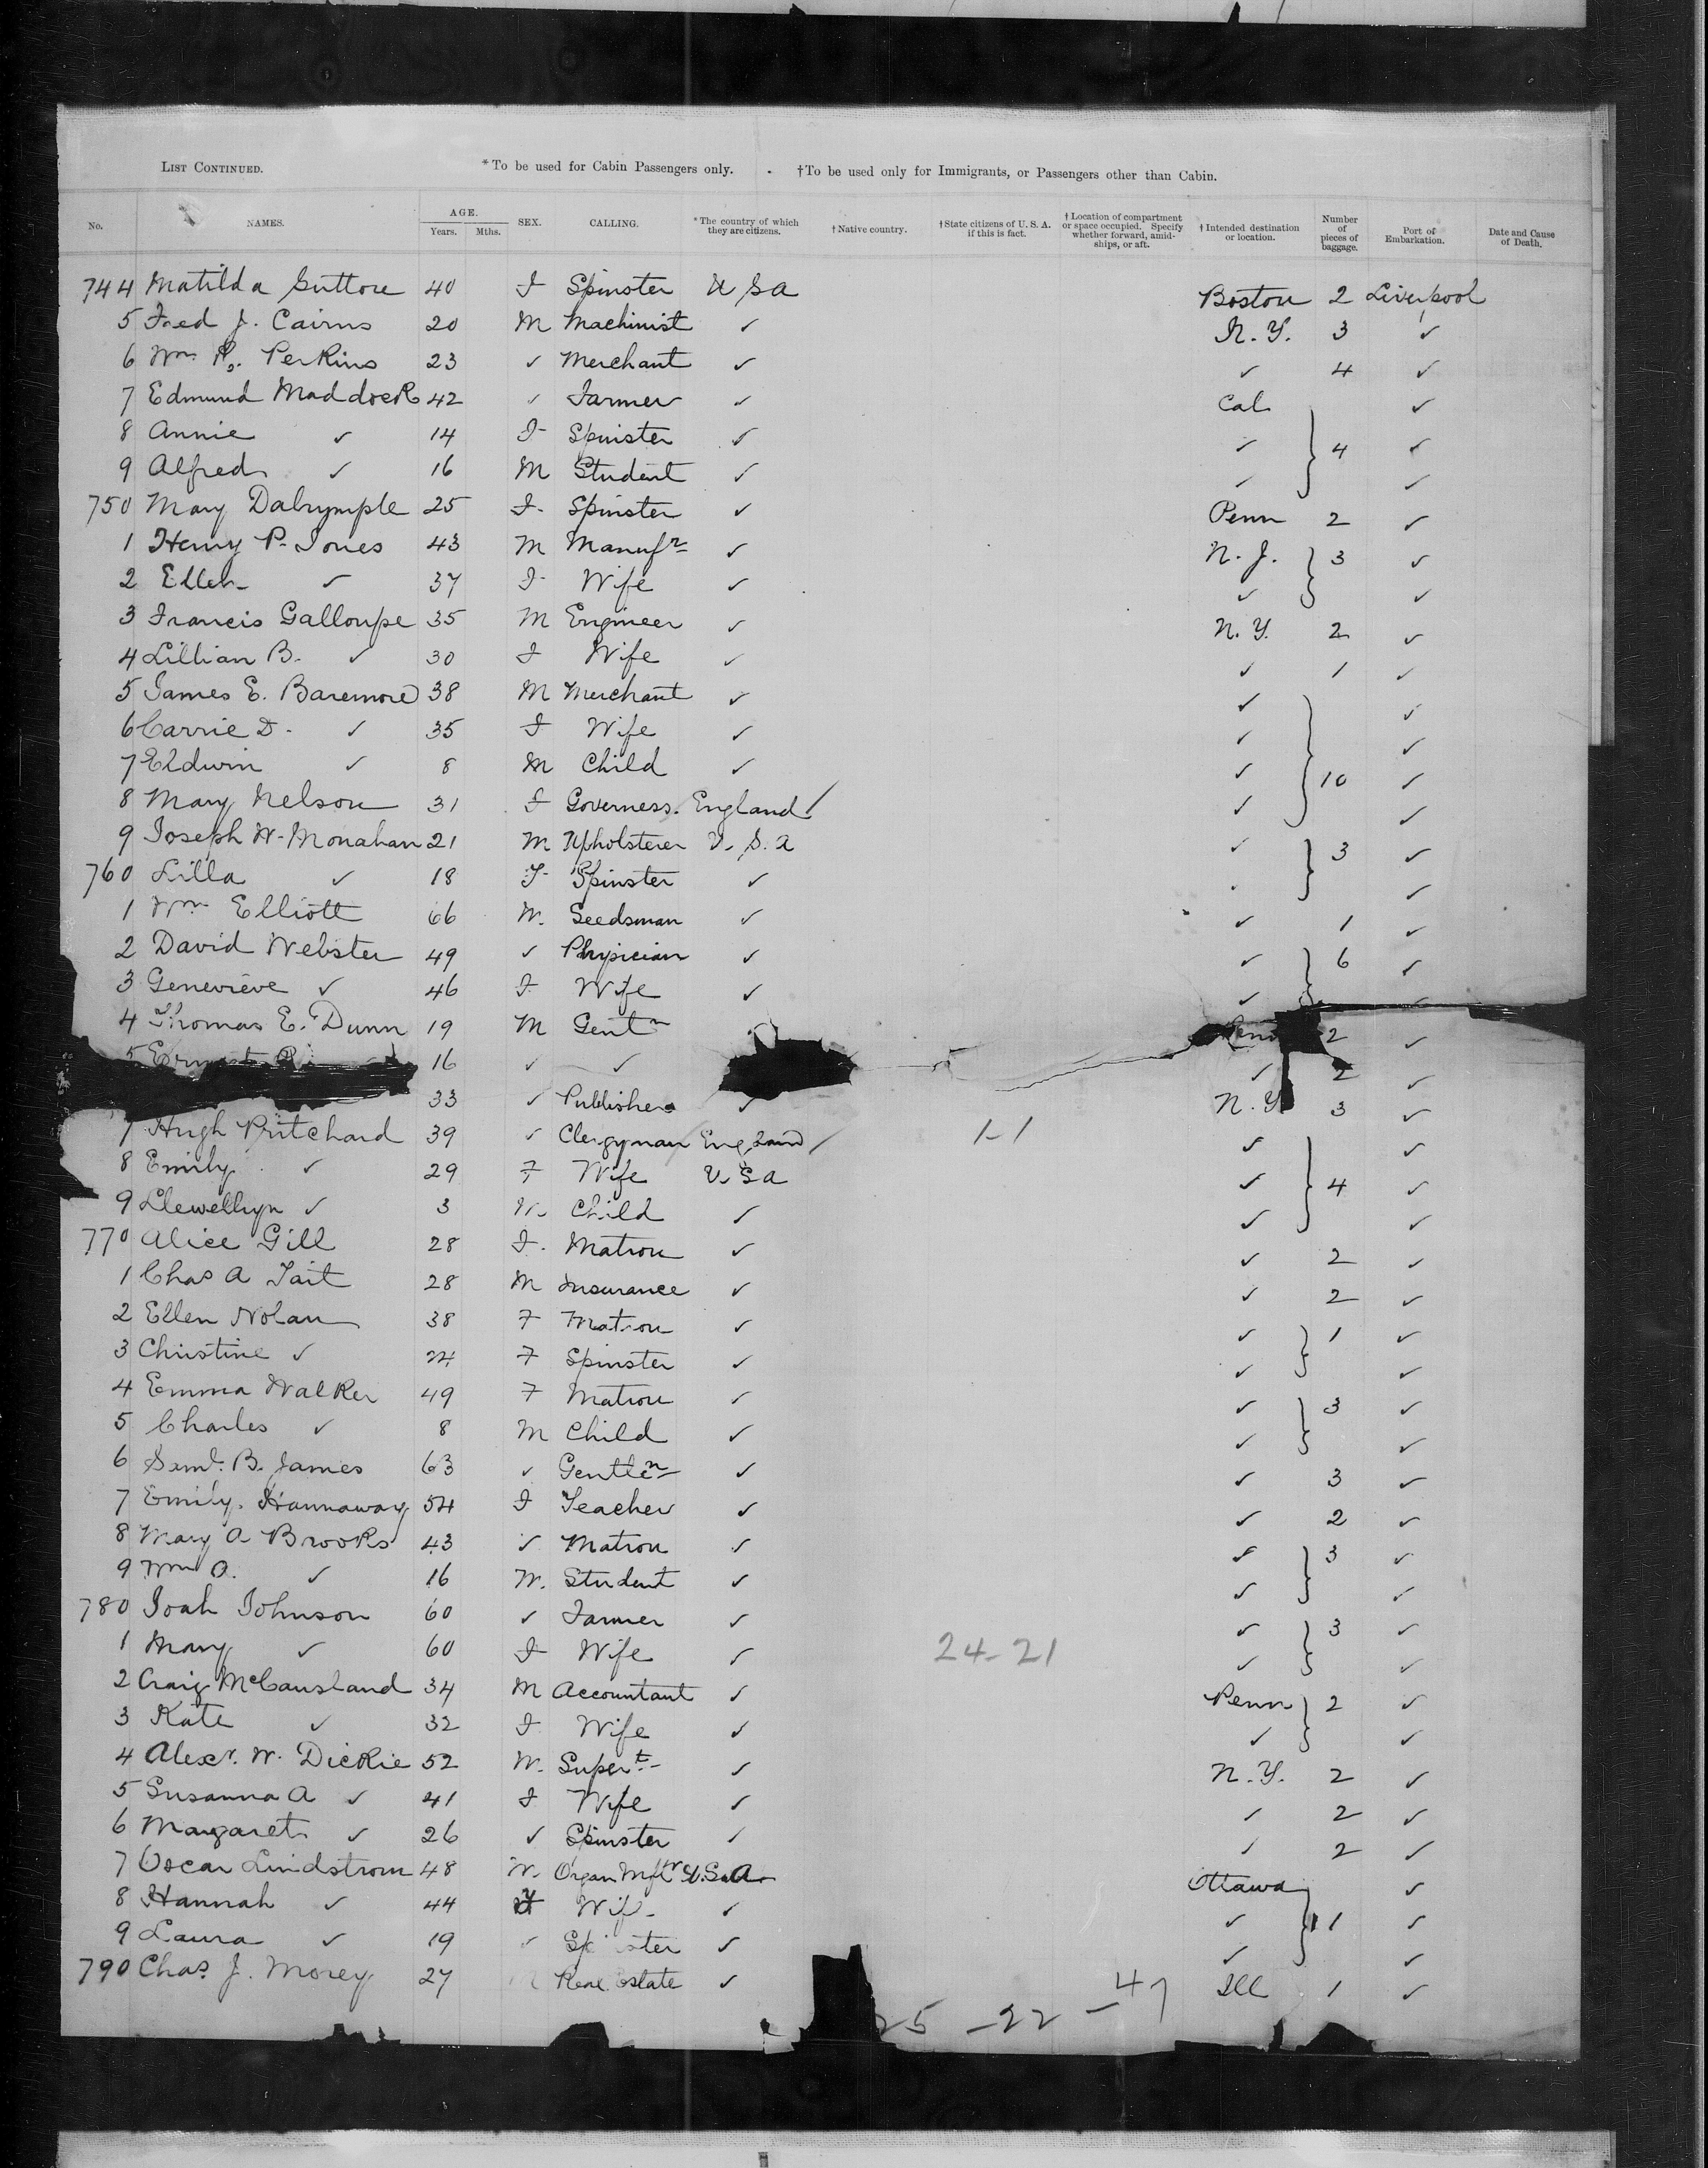 LIST CONTINUED. *To be used for Cabin Passengers only. †To be used only for Immigrants, or Passengers other than Cabin.
No. NAMES. AGE. Years. Mths. SEX. CALLING. *The country of which they are citizens. †Native country. †State citizens of U. S. A. if this is fact. †Location of compartment or space occupied. Specify whether forward, amidships, or aft. †Intended destination or location. Number of pieces of baggage. Port of Embarkation. Date and Cause of Death.
744 Matilda 40 F Spinster U S A Boston 2 Liverpool
5 Fred J. Cairns 20 M Machinist ✓ N.Y. 3 ✓
6 Wm. R. Perkins 23 ✓ Merchant ✓ ✓ 4 ✓
7 Edmund Maddock 42 ✓ Farmer ✓ Cal ✓
8 Annie ✓ 14 F Spinster ✓ ✓ 4 ✓
9 Alfred ✓ 16 M Student ✓ ✓ ✓
750 Mary Dalrymple 25 F. Spinster ✓ Penn 2 ✓
1 Henry P. Jones 43 M Manufr ✓ N.J. 3 ✓
2 Ellen ✓ 37 F Wife ✓ ✓ ✓
3 Francis Galloupe 35 M Engineer ✓ N.Y. 2 ✓
4 Lillian B. ✓ 30 F Wife ✓ ✓ 1 ✓
5 James E. Baremore 38 M Merchant ✓ ✓ ✓
6 Carrie D. ✓ 35 F Wife ✓ ✓ ✓
7 Eldwin ✓ 8 M Child ✓ ✓ 10 ✓
8 Mary Nelson 31 F Governess. England ✓ ✓
9 Joseph W. Monahan 21 M Upholsterer U.S.A ✓ 3 ✓
760 Lilla ✓ 18 F Spinster ✓ ✓
1 Wm Elliott 66 M. Seedsman ✓ ✓ 1 ✓
2 David Webster 49 ✓ Physician ✓ ✓ 6 ✓
3 Genevieve ✓ 46 F Wife ✓ ✓ ✓
4 Thomas E. Dunn 19 M Gentn 2 ✓
5 Ernest R. 16 ✓ ✓ ✓ 2 ✓
33 ✓ Publisher ✓ N.Y 3 ✓
7 Hugh Pritchard 39 ✓ Clergyman England 1-1 ✓ ✓
8 Emily ✓ 29 F Wife U.S.A ✓ 4 ✓
9 Llewellyn ✓ 3 M. Child ✓ ✓ ✓
770 Alice Gill 28 F. Matron ✓ ✓ 2 ✓
1 Chas A Tait 28 M Insurance ✓ ✓ 2 ✓
2 Ellen Nolan 38 F Matron ✓ ✓ 1 ✓
3 Christine ✓ F Spinster ✓ ✓ ✓
4 Emma Walker 49 F Matron ✓ ✓ 3 ✓
5 Charles ✓ 8 M Child ✓ ✓ ✓
6 Saml. B. James 63 ✓ Gentlen ✓ ✓ 3 ✓
7 Emily. Hannaway 54 F Teacher ✓ ✓ 2 ✓
8 Mary A Brooks 43 ✓ Matron ✓ ✓ 3 ✓
9 Wm A. ✓ 16 M. Student ✓ ✓ ✓
780 Joah Johnson 60 ✓ Farmer ✓ ✓ 3 ✓
1 Mary ✓ 60 F Wife ✓ 24-21 ✓ ✓
2 Craig McCausland 34 M Accountant ✓ Penn. 2 ✓
3 Kate ✓ 32 F Wife ✓ ✓ ✓
4 Alexr. W. Dickie 52 M. Supert. ✓ N.Y. 2 ✓
5 Susanna A ✓ 41 F Wife ✓ ✓ 2 ✓
6 Margaret ✓ 26 ✓ Spinster ✓ ✓ 2 ✓
7 Oscar Lindstrom 48 M. Organ Mftr U.S.A. Ottawa ✓
8 Hannah ✓ 44 F Wife ✓ ✓ 11 ✓
9 Laura ✓ 19 ✓ Spinster ✓ ✓ ✓
790 Chas. J. Morey 27 M Real Estate ✓ Ill 1 ✓
25 - 22 - 47